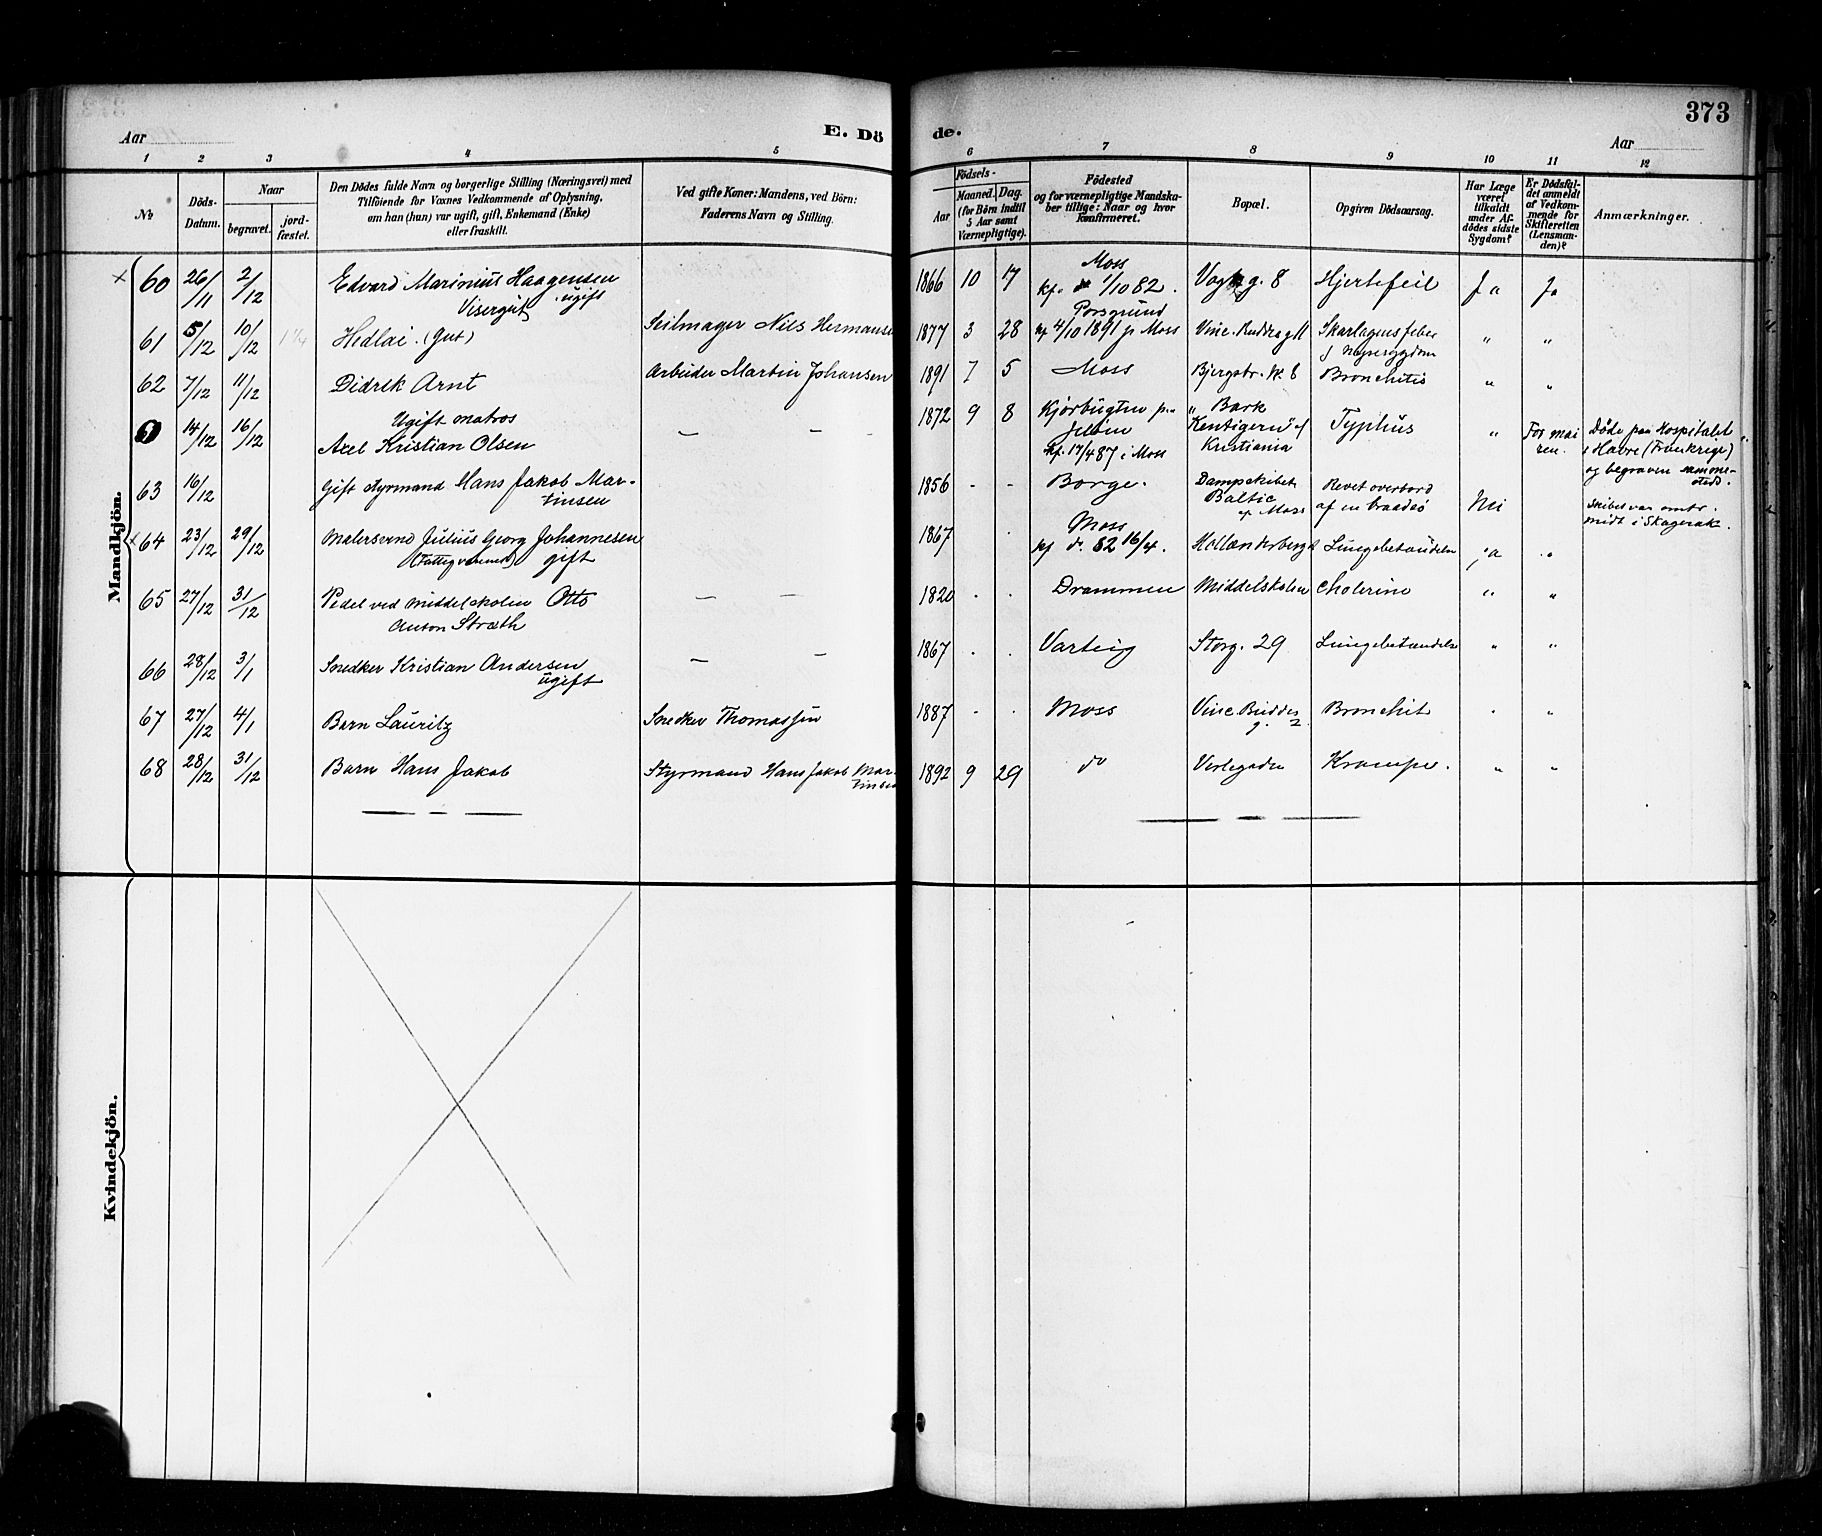 373
Aar
E. Dö
de.
Aar
1 2 3 4 5 6 7 8 9 10 11 12
No
Döds-Datum.
Naar
begravet.
jord-fæstet.
Den Dödes fulde Navn og borgerlige Stilling (Næringsvei) med
Tilföiende for Voxnes Vedkommende af Oplysning,
om han (hun) var ugift, gift, Enkemand (Enke)
eller fraskilt.
Ved gifte Koner: Mandens, ved Börn:
Faderens Navn og Stilling.
Födsels-
Aar
Maaned. Dag.
(for Börn indtil
5 Aar samt
Værnepligtige).
Födested
og for værnepligtige Mandska-
ber tillige: Naar og hvor
konfirmeret.
Bopæl.
Opgiven Dödsaarsag.
Har Læge
været
tilkaldt
under Af-
dödes sidste
Sygdom?
Er Dödsfal-
det anmeldt
af Vedkom-
mende for
Skifteretten
(Lensman-
den)?
Anmærkninger.
Mandkjön.
× 60 26/11 2/12 Edvard Marinius Haagensen
Visergut ugift
1866 10 17 Moss
kf. 1/10 82. Vog g. 8 Hjertefeil Ja Ja
61 5/12 10/12 Hedlai (gut) Seilmager Nils Hermansen 1877 3 28 Porsgrund
kf 4/10 1891 p Moss Vinc. Buddes g 11 Skarlagensfeber
Nyresygdom " "
62 7/12 11/12 Didrik Arnt Arbeider Martin Johansen 1891 7 5 Moss Bjergstr. 8 Bronchitis " "
14/12 16/12 Ugift matros
Axel Kristian Olsen — — 1872 9 8 Kjørbugten p
Jeløen
kf. 17/4 87 i Moss "Bark
Kentigern" af
Kristiania Typhus " For mai
sen. Døde paa Hospitalet
i Havre (Frankrige)
og begraven samme-
steds.
63 16/12 Gift styrmand Hans Jakob Mar-
tinsen 1856 - - Borge. Dampskibet
Baltic
af Moss Revet overbord
af en braadsø Nei Skibet var omtr.
midt i Skagerak.
× 64 23/12 29/12 Malersvend Julius Georg Johannesen
gift 1867 . Moss
kf d. 82 16/4. Hollænderberg Lungebetændelse ja "
65 27/12 31/12 Pedel ved Middelskolen Otto
Anton Stræth — — 1820 . . Drammen Middelskolen Cholerine " "
66 28/12 3/1 Snedker Kristian Andersen
ugift — — 1867 . . Varteig Storg. 29 Lungebetændelse " "
67 27/12 4/1 Barn Lauritz Snedker Thomassen 1887 . . Moss Vinc. Buddes
g. 2 Bronchit " "
68 28/12 31/12 Barn Hans Jakob Styrmand Hans Jakob Mar-
tinsen 1892 9 29 do Verlegaden Krampe. " "
Kvindekjön.